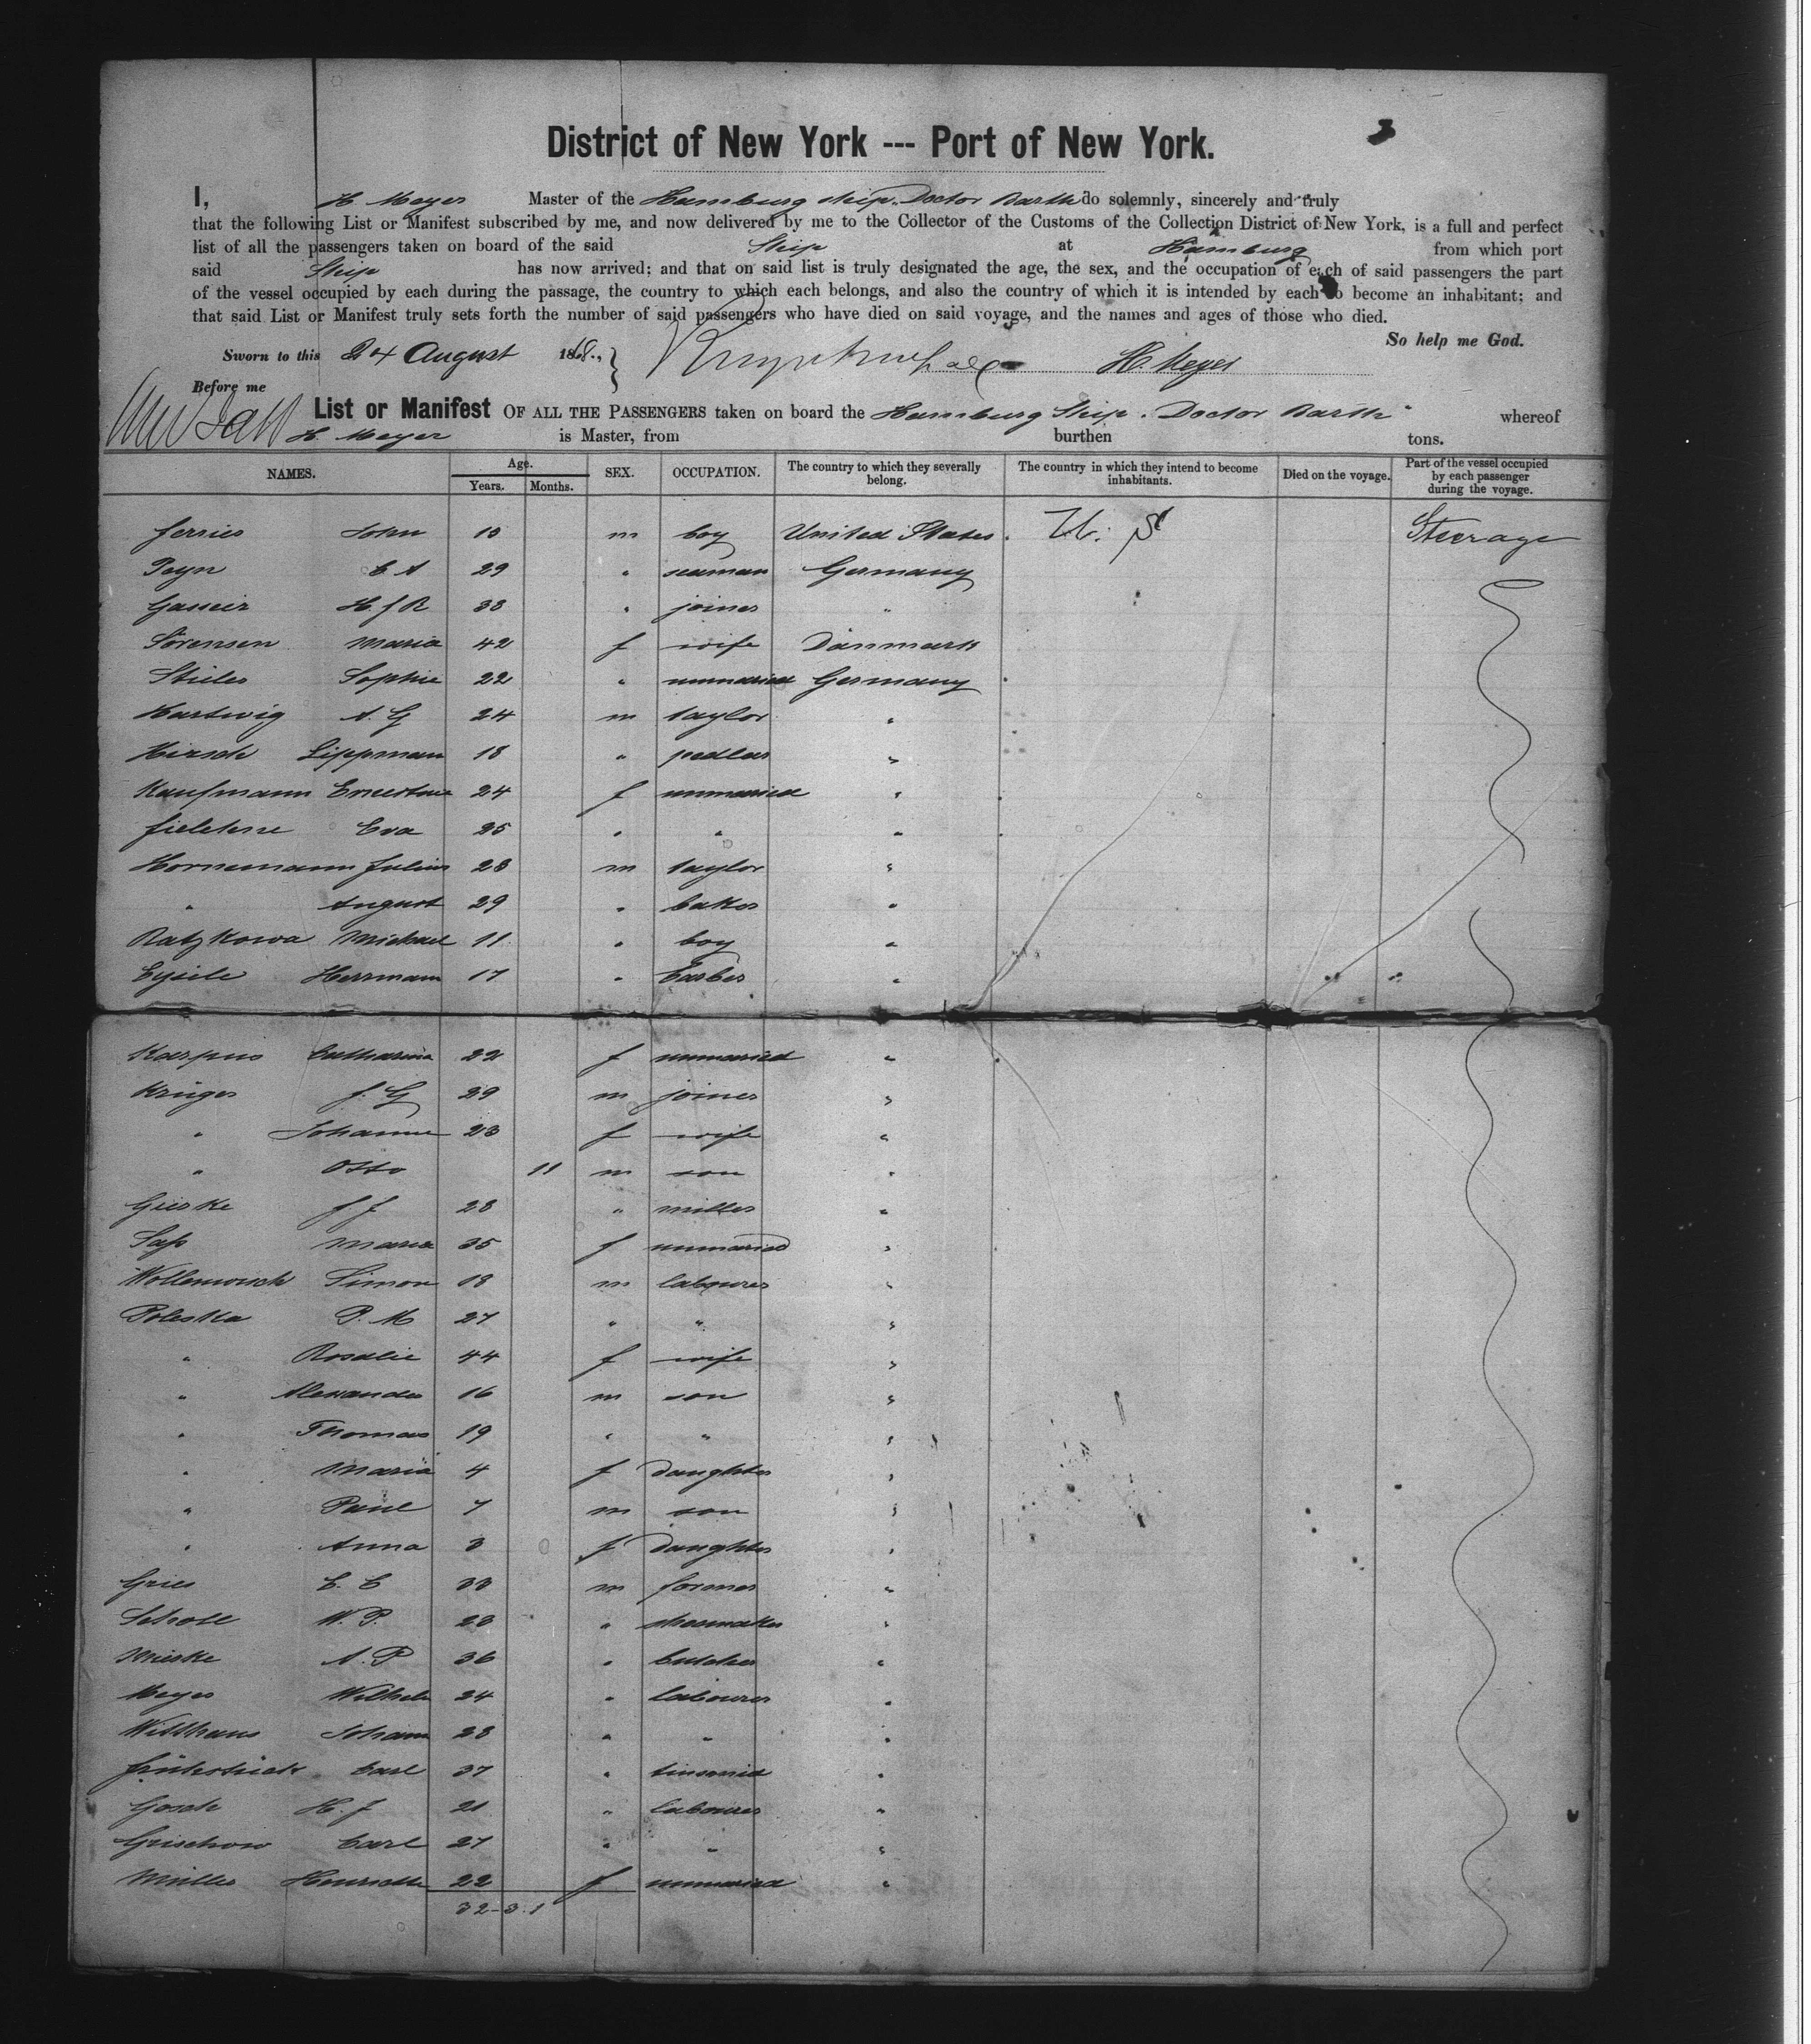 3
District of New York --- Port of New York.
I, H Meyer Master of the Hamburg ship. Doctor Barth do solemnly, sincerely and truly
that the following List or Manifest subscribed by me, and now delivered by me to the Collector of the Customs of the Collection District of New York, is a full and perfect
list of all the passengers taken on board of the said Ship at Hamburg from which port
said Ship has now arrived; and that on said list is truly designated the age, the sex, and the occupation of each of said passengers the part
of the vessel occupied by each during the passage, the country to which each belongs, and also the country of which it is intended by each to become an inhabitant; and
that said List or Manifest truly sets forth the number of said passengers who have died on said voyage, and the names and ages of those who died.
So help me God.
Sworn to this 24 August 1868., H. Meyer
Before me
List or Manifest OF ALL THE PASSENGERS taken on board the Hamburg Ship. Doctor Barth" whereof
H Meyer is Master, from burthen tons.
NAMES. Age. Years. Months. SEX. OCCUPATION. The country to which they severally belong. The country in which they intend to become inhabitants. Died on the voyage. Part of the vessel occupied by each passenger during the voyage.
Ferries John 10 m boy United States. U. S Steerage
Peyn C A 29 " seaman Germany
H. J R 38 " joiner "
Sörensen Maria 42 f wife Danmark
Stieler Sophie 22 " unmaried Germany
Hartwig A. G 24 m taylor "
Hirsch Lippman 18 " pedlar "
Kaufmann Ernestine 24 f unmaried "
Eva 25 " " "
Hornemann Julius 28 m taylor "
" August 29 " baker "
Ratzkowa Michael 11 " boy "
Eysele Herrmann 17 " barber "
Karpus Catharina 22 f unmaried "
Krüger J. G 29 m joiner "
" Johanne 23 f wife "
" Otto 11 m son "
Gieske J J 28 " miller "
Sass Maria 35 f unmaried "
Simon 18 m labourer "
Poleska P. M 27 " " "
" Rosalie 44 f wife "
" Alexander 16 m son "
" Thomas 19 " " "
" Maria 4 f daughter "
" Paul 7 m son "
" Anna 3 f daughter "
Gries C. C 33 m former "
Scholl W. P. 28 " shoemaker "
Mieske A. P 36 " butcher "
Meyer Wilhelm 24 " labourer "
Witthans Johann 28 " " "
Frühstück Carl 37 " tinsmid "
Gosch H. J 21 " labourer "
Grischow Carl 27 " " "
Müller Henriette 22 f unmaried "
32-3.1